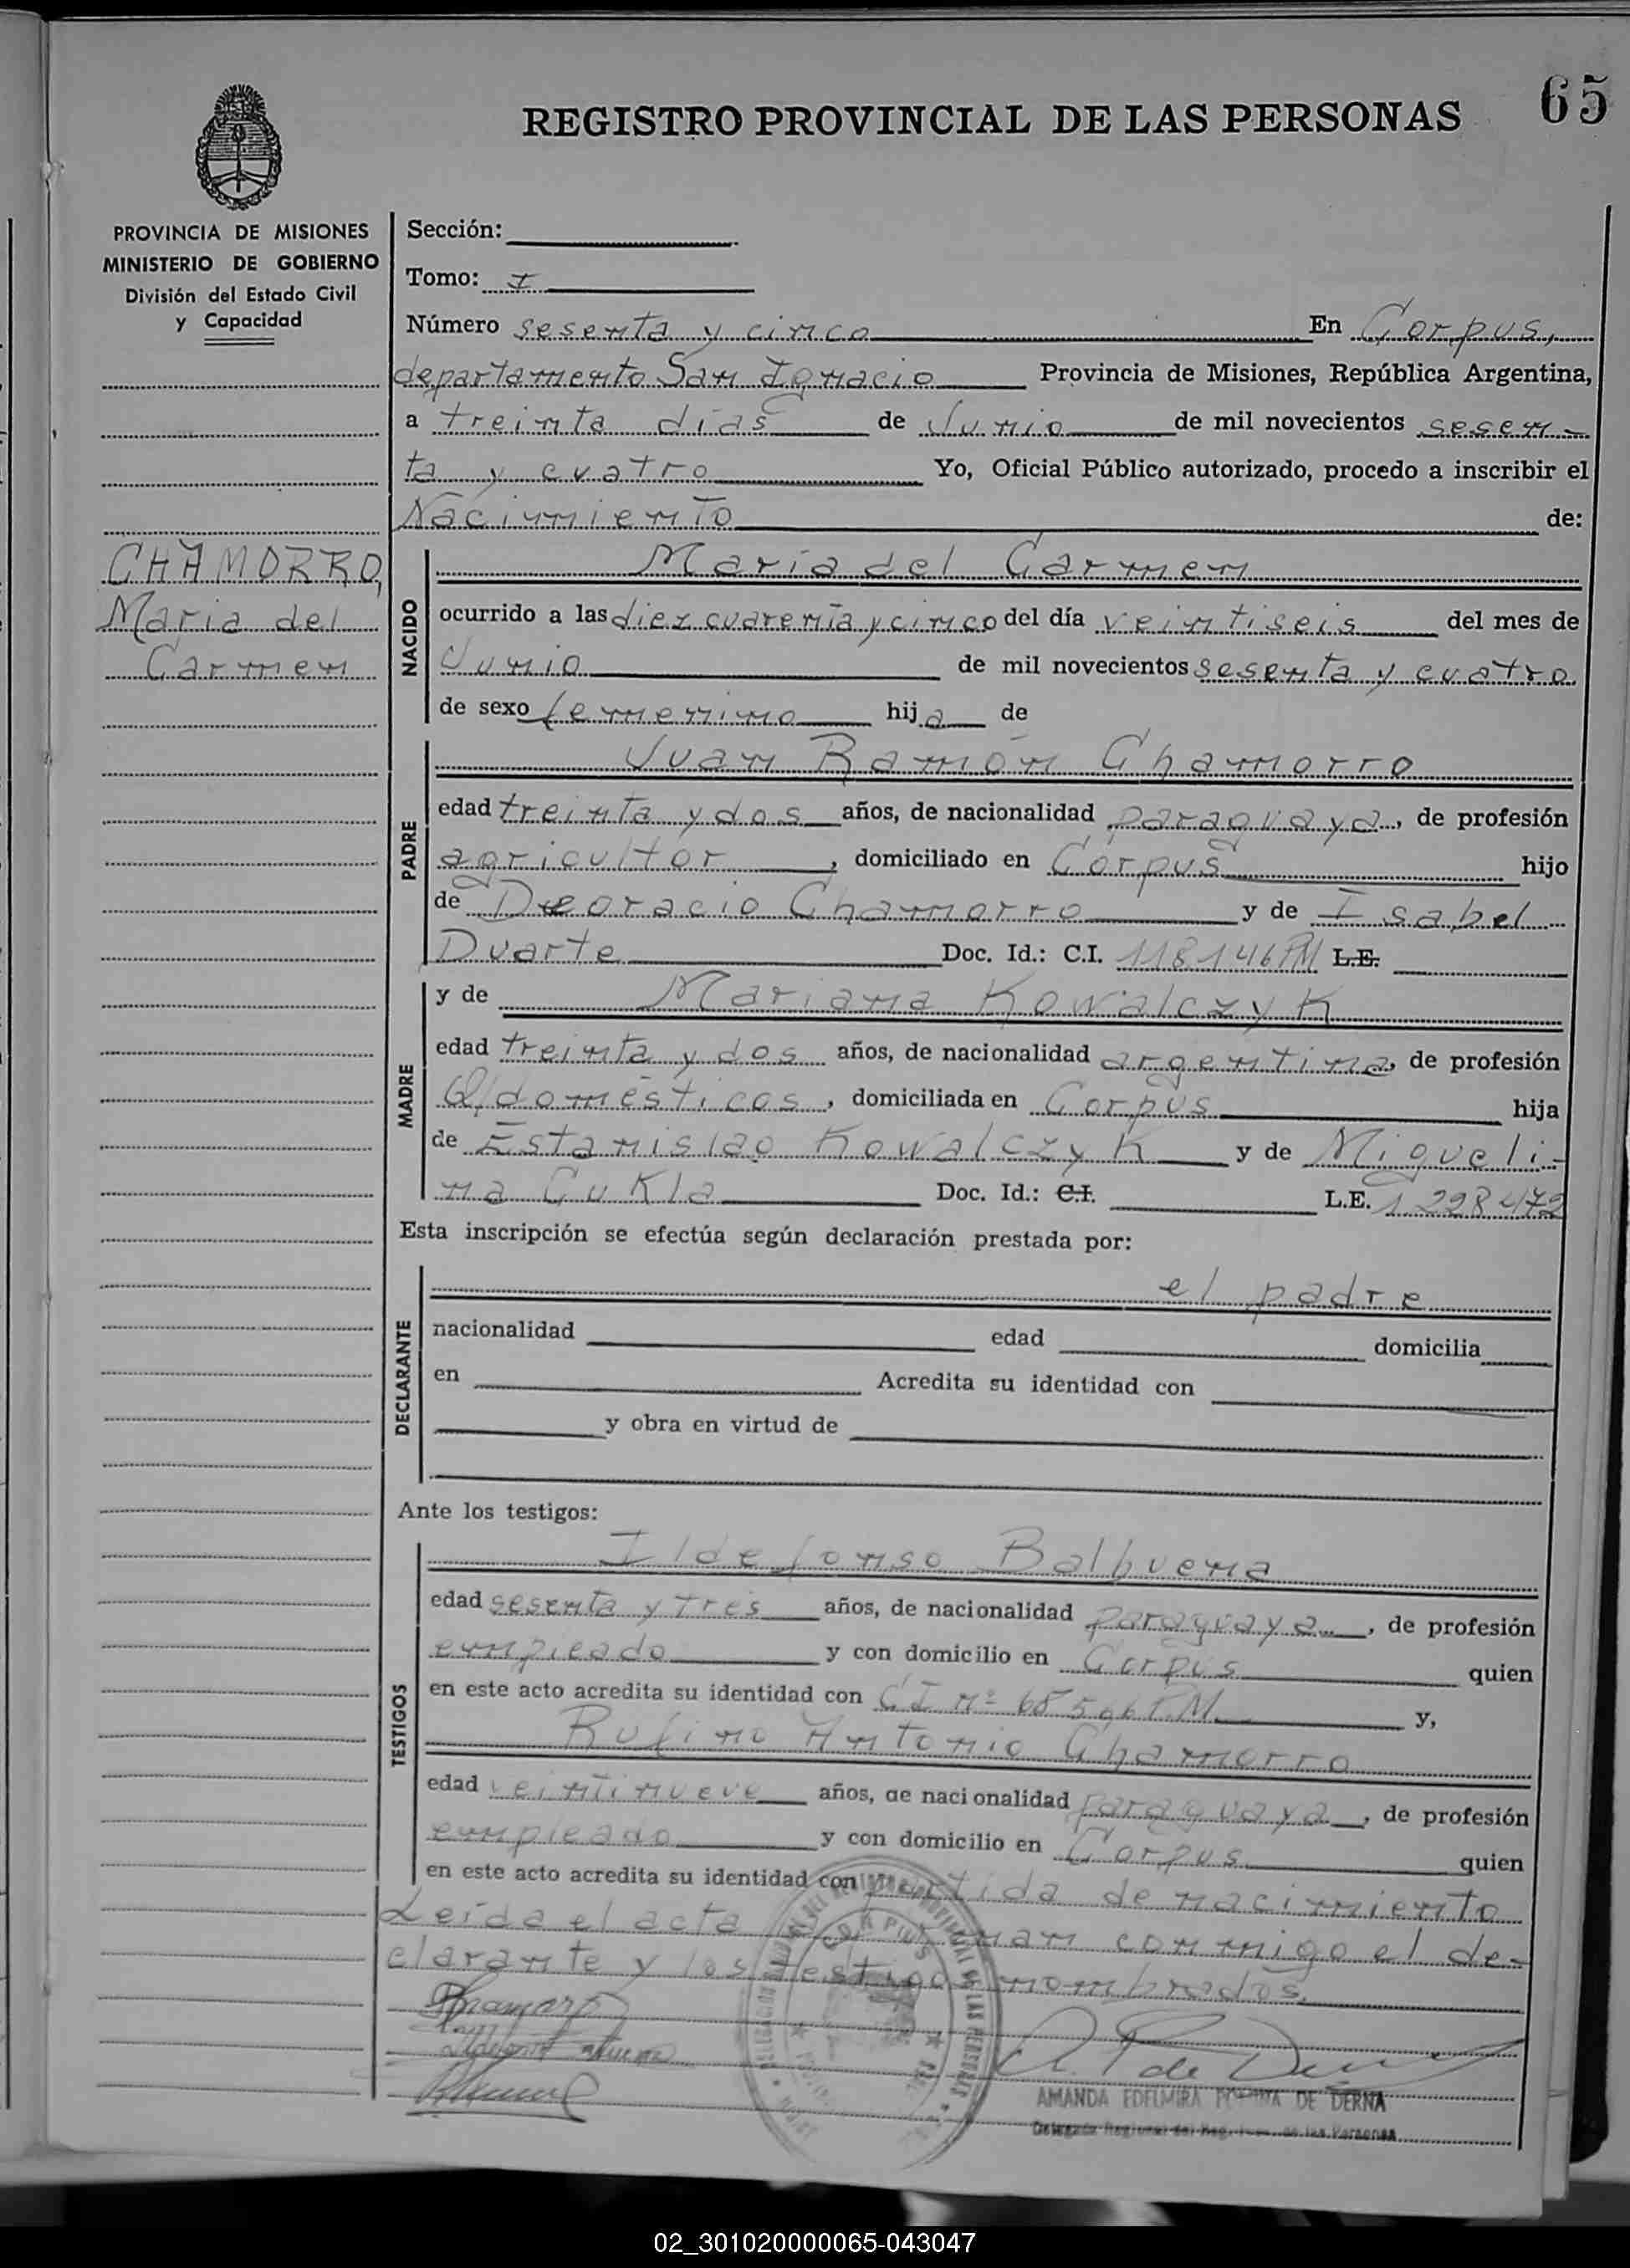 65
REGISTRO PROVINCIAL DE LAS PERSONAS
PROVINCIA DE MISIONES
MINISTERIO DE GOBIERNO
División del Estado Civil
y Capacidad
CHAMORRO,
Maria del
Carmen
Sección:
Tomo: I
Número sesenta y cinco En Corpus,
departamento San Ignacio Provincia de Misiones, República Argentina,
a treinta días de Junio de mil novecientos sesen-
ta y cuatro Yo, Oficial Público autorizado, procedo a inscribir el
Nacimiento de:
NACIDO
María del Carmen
ocurrido a las diez cuarenta y cinco del día veintiseis del mes de
Junio de mil novecientos sesenta y cuatro
de sexo femenino hija de
PADRE
Juan Ramón Chamorro
edad treinta y dos años, de nacionalidad paraguaya, de profesión
agricultor, domiciliado en Corpus hijo
de Deoracio Chamorro y de Isabel
Duarte Doc. Id.: C.I. 118146PM L.E.
MADRE
y de Mariana Kowalczyk
edad treinta y dos años, de nacionalidad argentina, de profesión
Q/domésticos, domiciliada en Corpus hija
de Estanislao Kowalczyk y de Migueli-
na Cukla Doc. Id.: C.I. L.E. 1.228472
Esta inscripción se efectúa según declaración prestada por:
DECLARANTE
el padre
nacionalidad edad domicilia
en Acredita su identidad con
y obra en virtud de
Ante los testigos:
TESTIGOS
Ildefonso Balbuena
edad sesenta y tres años, de nacionalidad paraguaya, de profesión
empleado y con domicilio en Corpus quien
en este acto acredita su identidad con CI nº y,
Rufino Antonio Chamorro
edad veintinueve años, de nacionalidad paraguaya, de profesión
empleado y con domicilio en Corpus quien
en este acto acredita su identidad con partida de nacimiento
Leída el acta conmigo el de-
clarante y los testigos nombrados.
CORPUS
AMANDA EDELMIRA DE DERNA
Delegada Regional del de las Personas
02_301020000065-043047